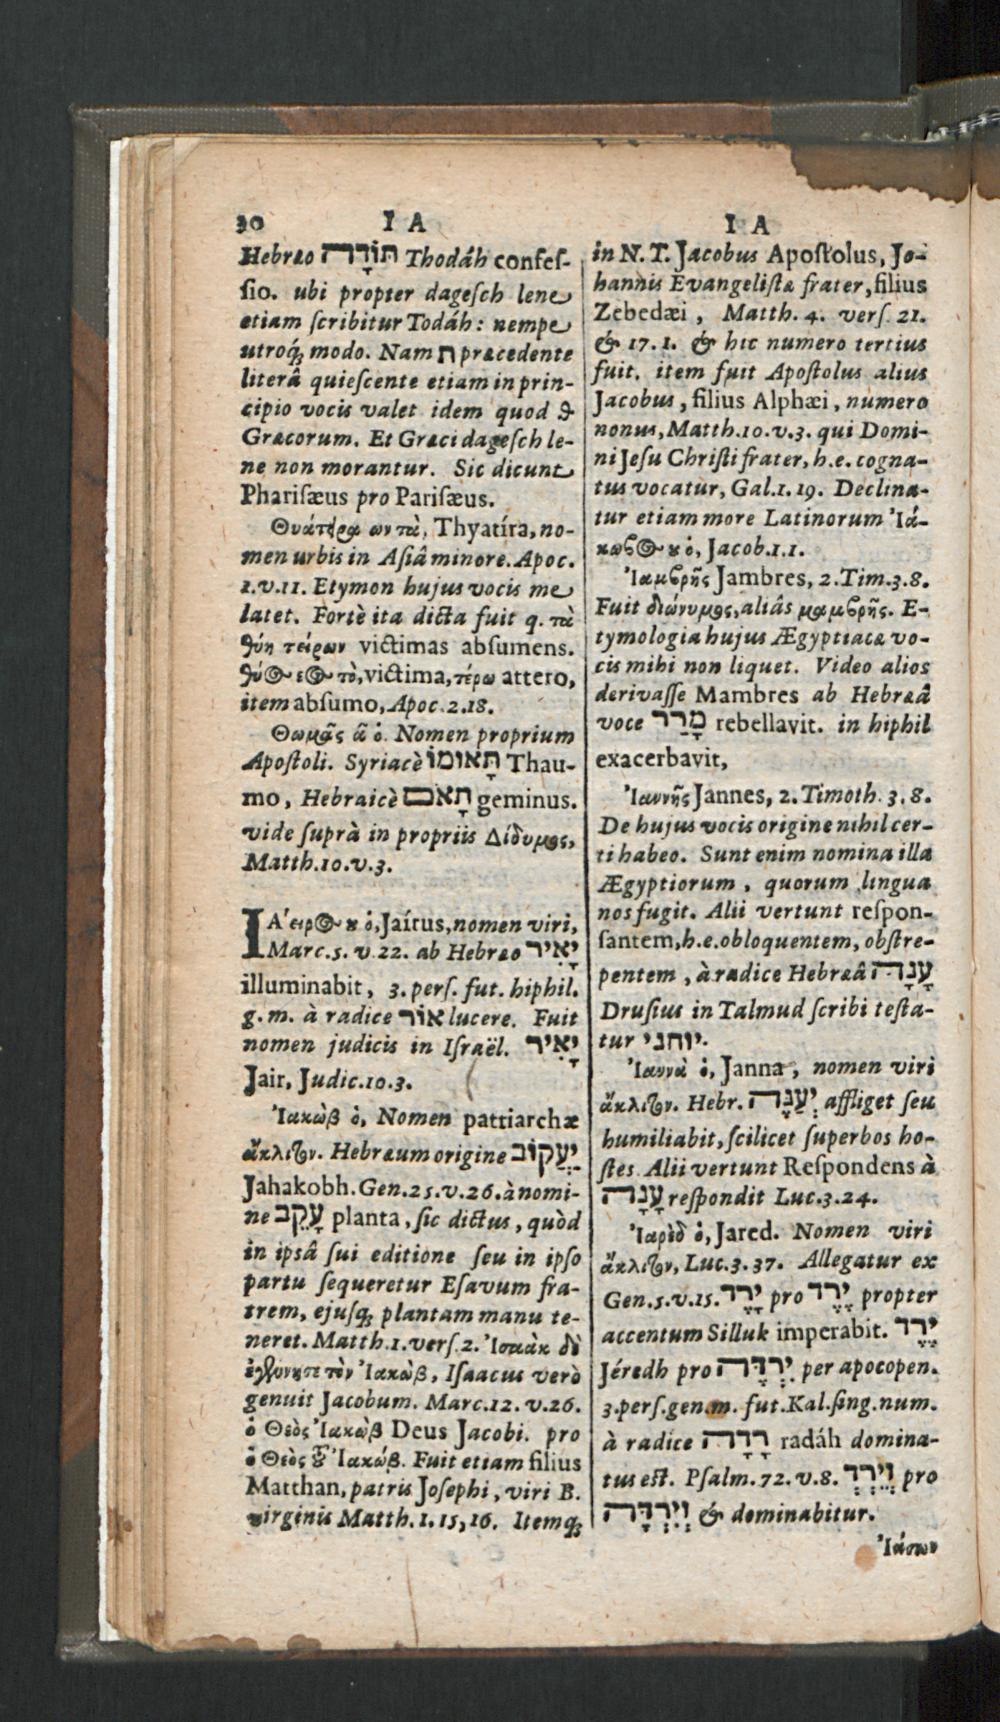 30 I A
Hebræo תּוֹדָה Thodáh confeſ-
ſio. ubi propter dageſch lene
etiam ſcribitur Todáh: nempe
utroq́ꝫ modo. Nam ת præcedente
literâ quieſcente etiam in prin-
cipio vocis valet idem quod ϑ
Græcorum. Et Græci dageſch le-
ne non morantur. Sic dicunt
Phariſæus pro Pariſæus.
Θυάτειρα ων τὰ, Thyatíra, no-
men urbis in Aſiâ minore. Apoc.
1. v. 11. Etymon hujus vocis me
latet. Fortè ita dicta fuit q. τὰ
θύη τείρων victimas abſumens.
θύος εος τὸ, victima, τέρω attero,
item abſumo, Apoc. 2.18.
Θωμᾶς ᾶ ὁ. Nomen proprium
Apoſtoli. Syriacè תָּאוּמוֹ Thau-
mo, Hebraicè תָאם geminus.
vide ſuprà in propriis Δίδυμος,
Matth. 10. v. 3.
IΑ'ειρος ου ὁ, Jaírus, nomen viri,
Marc. 5. v. 22. ab Hebræo יָאִיר
illuminabit, 3. perſ. fut. hiphil.
g. m. à radice אוֹר lucere. Fuit
nomen judicis in Iſraël. יָאִיר
Jair, Judic. 10.3.
Ἰακὼβ ὁ, Nomen pattiarchæ
ἄκλιτον. Hebræum origine יַעֲקוֹב
Jahakobh. Gen. 25. v. 26. à nomi-
ne עָקֵב planta, ſic dictus, quòd
in ipsâ ſui editione ſeu in ipſo
partu ſequeretur Eſavum fra-
trem, ejuſqꝫ plantam manu te-
neret. Matth. 1. verſ. 2. Ἰσαὰκ δὲ
ἐγέννησε τὸν Ἰακὼβ, Iſaacus verò
genuit Jacobum. Marc. 12. v. 26.
ὁ Θεὸς Ἰακὼβ Deus Jacobi. pro
ὁ Θεὸς τοῦ Ἰακώβ. Fuit etiam filius
Matthan, patris Joſephi, viri B.
virginis Matth. 1. 15, 16. Itemqꝫ
I A
in N. T. Jacobus Apoſtolus, Jo-
hannis Evangeliſtæ frater, filius
Zebedæi, Matth. 4. verſ. 21.
& 17.1. & hic numero tertius
fuit. item fuit Apoſtolus alius
Jacobus, filius Alphæi, numero
nonus, Matth. 10. v. 3. qui Domi-
ni Jeſu Chriſti frater, h. e. cogna-
tus vocatur, Gal. 1. 19. Declina-
tur etiam more Latinorum Ἰά-
κωβος ου ὁ, Jacob. 1.1.
Ἰαμβρῆς Jambres, 2. Tim. 3.8.
Fuit διώνυμος, aliâs μαμβρῆς. E-
tymologia hujus Ægyptiacæ vo-
cis mihi non liquet. Video alios
derivaſſe Mambres ab Hebræâ
voce מָרַר rebellavit. in hiphil
exacerbavit,
Ἰαννῆς Jannes, 2. Timoth. 3.8.
De hujus vocis origine nihil cer-
ti habeo. Sunt enim nomina illa
Ægyptiorum, quorum lingua
nos fugit. Alii vertunt reſpon-
ſantem, h. e. obloquentem, obſtre-
pentem, à radice Hebræâ עָנָה
Druſius in Talmud ſcribi teſta-
tur יוחני.
Ἰαννὰ ὁ, Janna, nomen viri
ἄκλιτον. Hebr. יְעַנֶּה affliget ſeu
humiliabit, ſcilicet ſuperbos ho-
ſtes. Alii vertunt Reſpondens à
עָנָה reſpondit Luc. 3.24.
Ἰαρὶδ ὁ, Jared. Nomen viri
ἄκλιτον, Luc. 3. 37. Allegatur ex
Gen. 5. v. 15. יָרֶד pro יֶרֶד propter
accentum Silluk imperabit. יֶרֶד
Jéredh pro יִרְדֶּה per apocopen.
3. perſ. gen. m. fut. Kal. ſing. num.
à radice רָדָה radáh domina-
tus eſt. Pſalm. 72. v. 8. וְיֵרְדְּ pro
וְיִרְדֶּה & dominabitur.
Ἰάσων